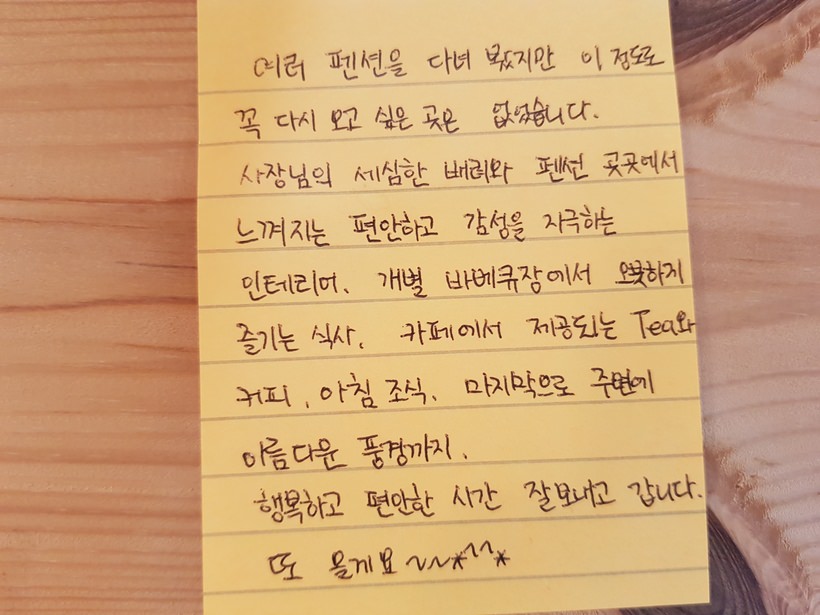 여러 펜션을 다녀 봤지만 이 정도로
꼭 다시 오고 싶은 곳은 없었습니다.
사장님의 세심한 배려와 펜션 곳곳에서
느껴지는 편안하고 감성을 자극하는
인테리어. 개별 바베큐장에서 오붓하게
즐기는 식사. 카페에서 제공되는 Tea와
커피, 아침 조식, 마지막으로 주변에
아름다운 풍경까지.
행복하고 편안한 시간 잘보내고 갑니다.
또 올게요 ~~*^^*